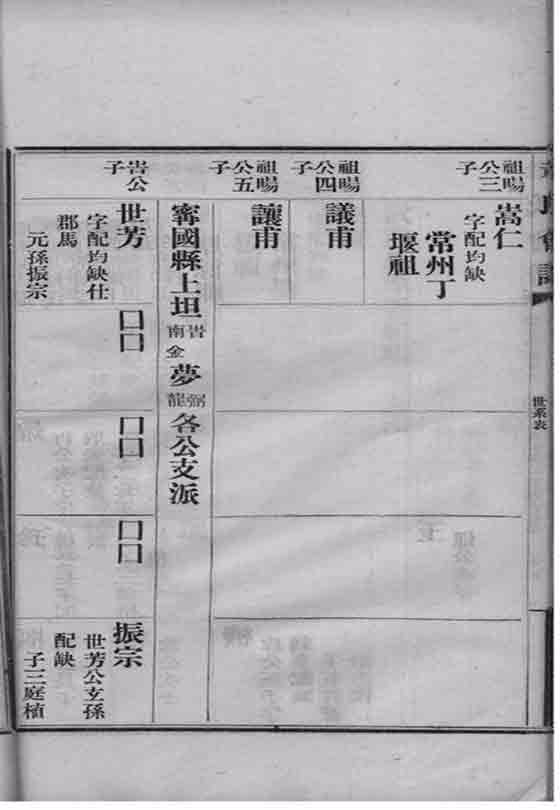 氏會譜
世系表
祖暘公三子
嵩仁
字配均缺
常州丁
堰祖
祖暘公四子
議甫
祖暘公五子
讓甫
寧國縣上坦旹南金夢弼龍各公支派
旹公子
世芳
字配均缺仕
郡馬
元孫振宗
囗囗
囗囗
囗囗
振宗
世芳公玄孫
配缺
子三庭植